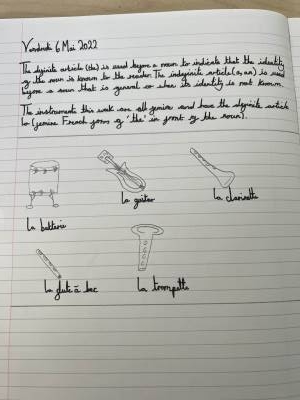 Vendredi 6 Mai 2022
The definite article (the) is used before a noun to indicate that the identity
of the noun is known to the reader. The indefinite article (a, an) is used
before a noun that is general or when its identity is not known.
The instruments this week are all femine and have the definite article
la (femine French form of 'the' in front of the noun).
La guitar
La clarinette
La batterie
La flute à bec
La trompette